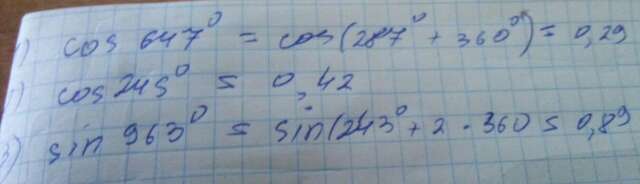 1) cos 647° = cos(287° + 360°) = 0,29
) cos 245° = 0,42
3) sin 963° = sin(243° + 2 · 360 = 0,89